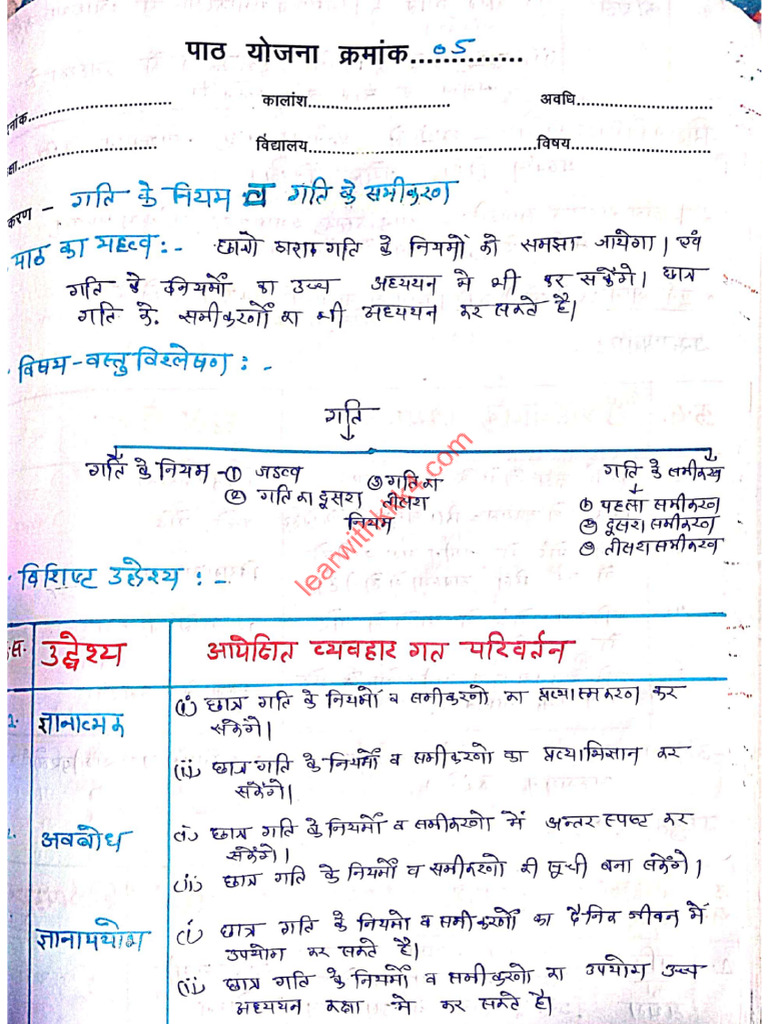 पाठ योजना क्रमांक..05...........
नांक........................ कालांश........................ अवधि........................
क्षा........................ विद्यालय........................ विषय........................
करण - गति के नियम व गति के समीकरण
पाठ का महत्व :- छात्रो द्वारा गति के नियमों को समझा जायेगा। एवं
गति के नियमों का उच्च अध्ययन मे भी कर सकेंगे। छात्र
गति के. समीकरणों का भी अध्ययन कर सकते है।
विषय-वस्तु विश्लेषण :-
गति
गति के नियम - ① जडत्व ③ गति का गति के समीकरण
② गति का दुसरा तीसरा ① पहला समीकरण
नियम ② दुसरा समीकरण
③ तीसरा समीकरण
learwithkkk4.com
विशिष्ट उद्देश्य :-
.स. उद्देश्य अपेक्षित व्यवहार गत परिवर्तन
1. ज्ञानात्मक (i) छात्र गति के नियमों व समीकरणो का प्रत्यास्मरण कर
सकेंगे।
(ii) छात्र गति के नियमों व समीकरणो का प्रत्याभिज्ञान कर
सकेंगे।
2. अवबोध (i) छात्र गति के नियमों व समीकरणो में अन्तर स्पष्ट कर
सकेंगे।
(ii) छात्र गति के नियमों व समीकरणो की सूची बना सकेंगे।
ज्ञानोपयोग (i) छात्र गति के नियमो व समीकरणों का दैनिक जीवन में
उपयोग कर सकते है।
(ii) छात्र गति के नियमों व समीकरणो का उपयोग उच्च
अध्ययन कक्षा मे कर सकते है।